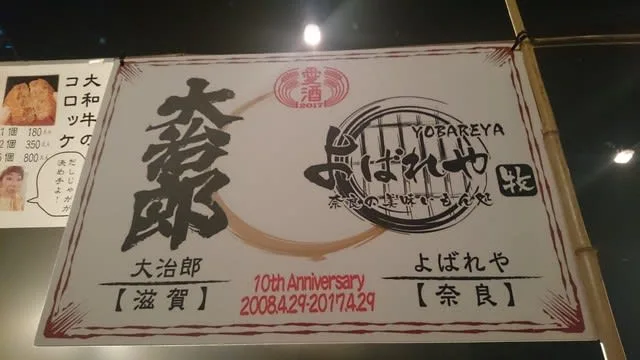 大和牛の
コロッケ
1個 180えん
2個 350えん
5個 800えん
だしじゃがが
決め手よ!
愛酒
2017
大治郎
YOBAREYA
よばれや
奈良の美味いもん処
牧
大治郎
【滋賀】
10th Anniversary
2008.4.29-2017.4.29
よばれや
【奈良】